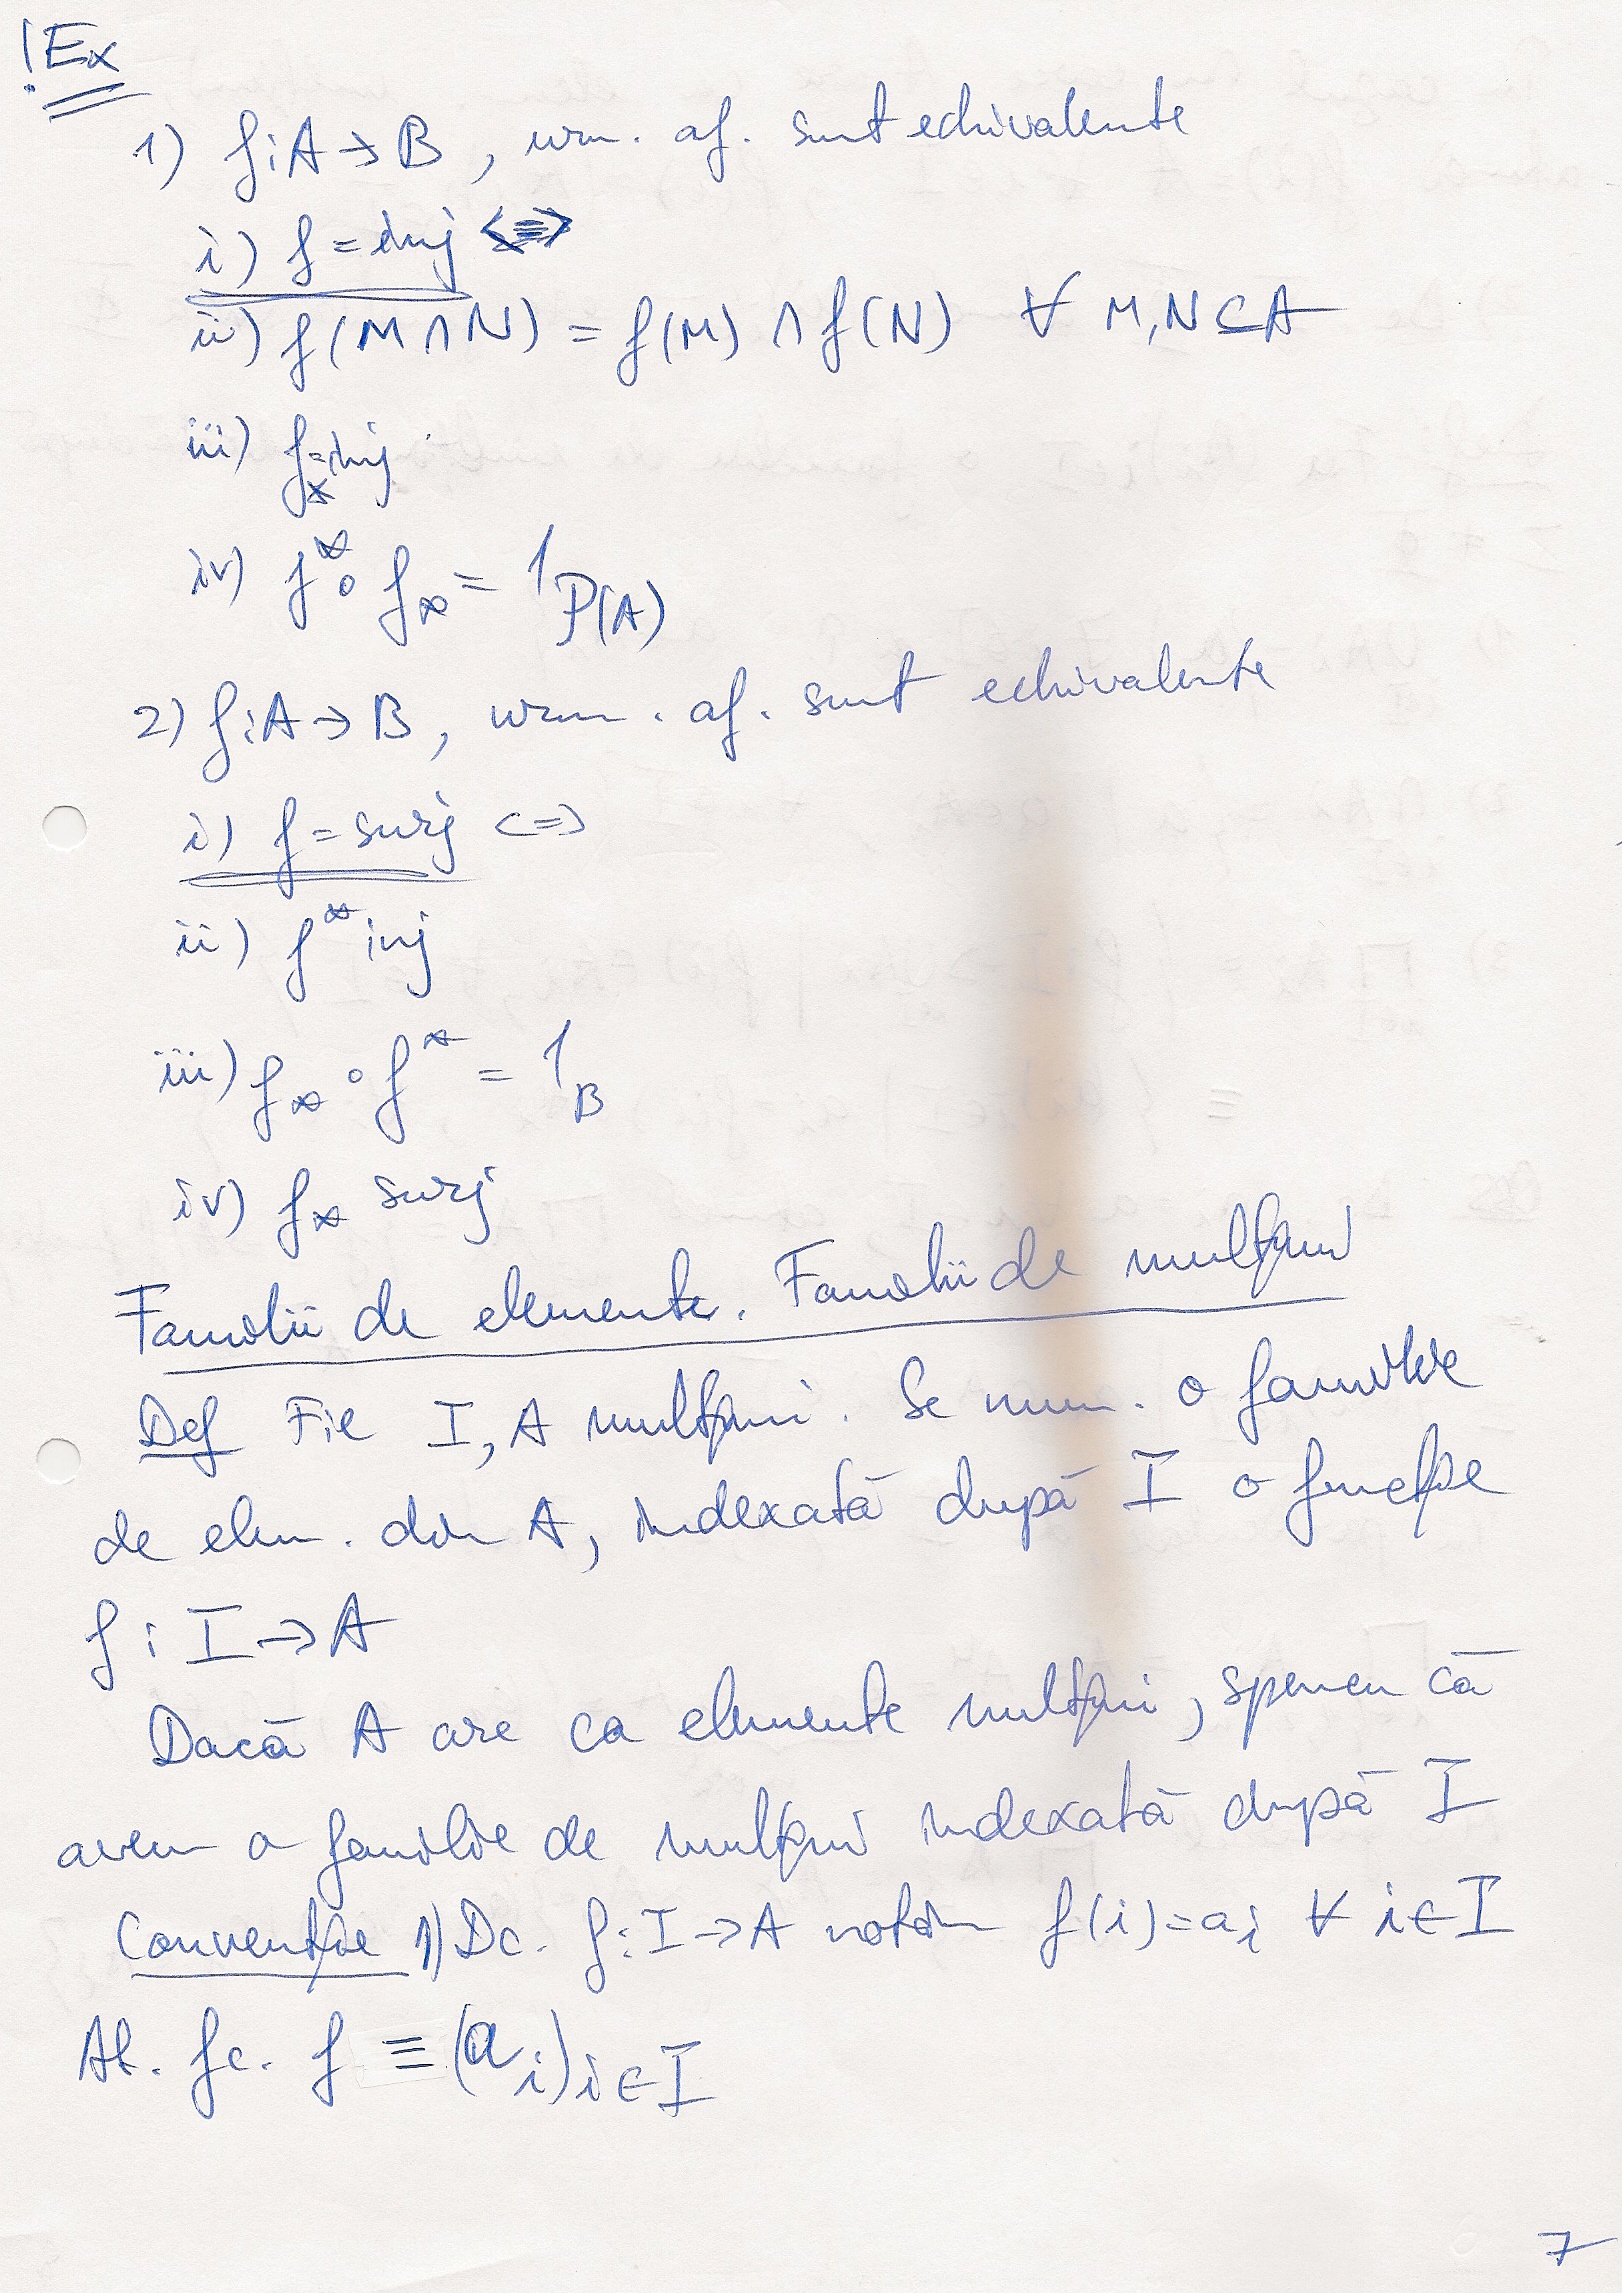 !Ex
1) f:A→B, urm. af. sunt echivalente
i) f=inj <=>
ii) f(M∩N) = f(M) ∩ f(N) ∀ M,N⊆A
iii) f_*=inj
iv) f^* ∘ f_* = 1_P(A)
2) f:A→B, urm. af. sunt echivalente
i) f=surj <=>
ii) f^* inj
iii) f_* ∘ f^* = 1_B
iv) f_* surj
Familii de elemente. Familii de mulțimi
Def Fie I, A mulțimi. Se num. o familie
de elem. din A, indexată după I o funcție
f : I→A
Dacă A are ca elemente mulțimi, spunem că
avem o familie de mulțimi indexată după I
Convenție 1) Dc. f:I→A notăm f(i)=a_i ∀ i∈I
At. fc. f ≡ (a_i)_i∈I
7